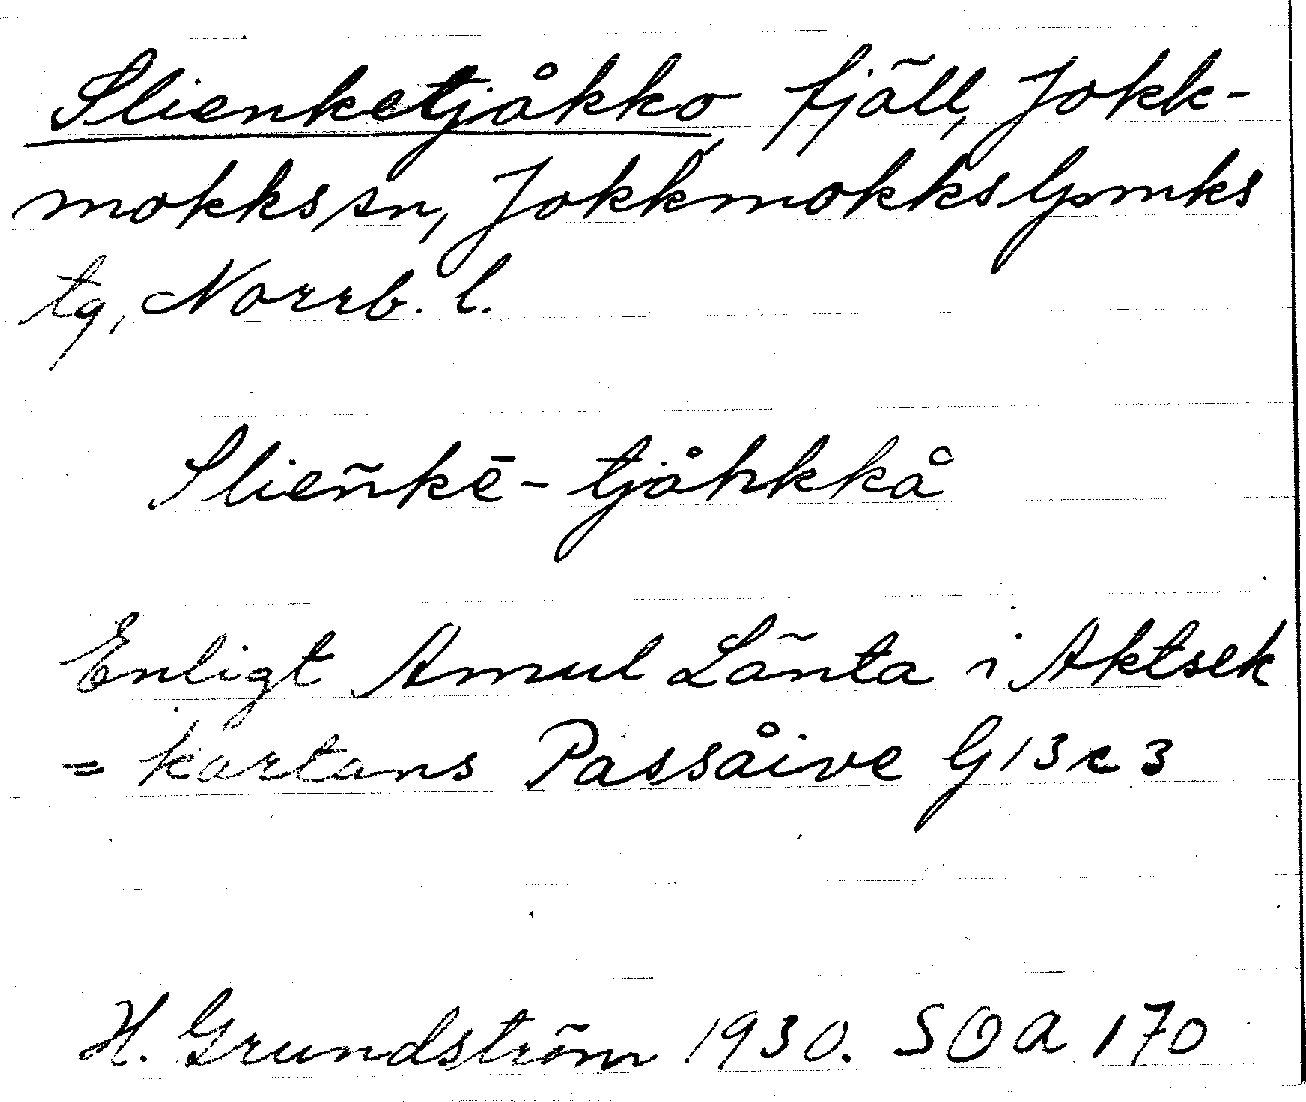 Slienketjåkko fjäll, Jokk-
mokks sn, Jokkmokks lpmks
tg, Norrb. l.
Slieñkē-tjåhkkå
Enligt Amul Länta i Aktsek
= kartans Passåive G13c3
H. Grundström 1930. SOA 170